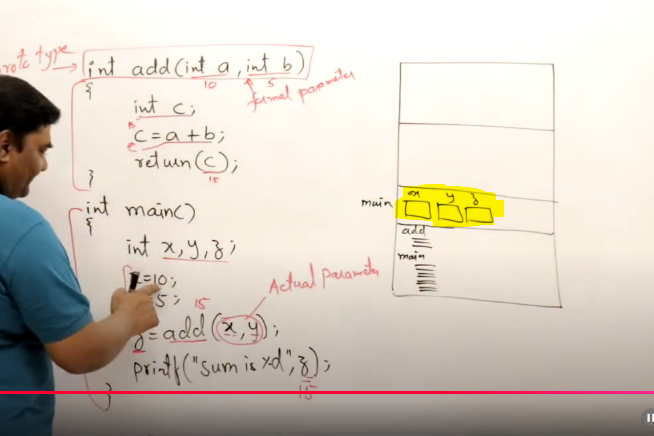 type → int add(int a, int b)
10 5
formal parameter
{
int c;
15
c=a+b;
return(c);
15
}
int main()
{
int x,y,z;
=10;
5;
15
Actual Parameter
z=add(x,y);
printf("sum is %d",z);
15
}
x y z
main
add
main